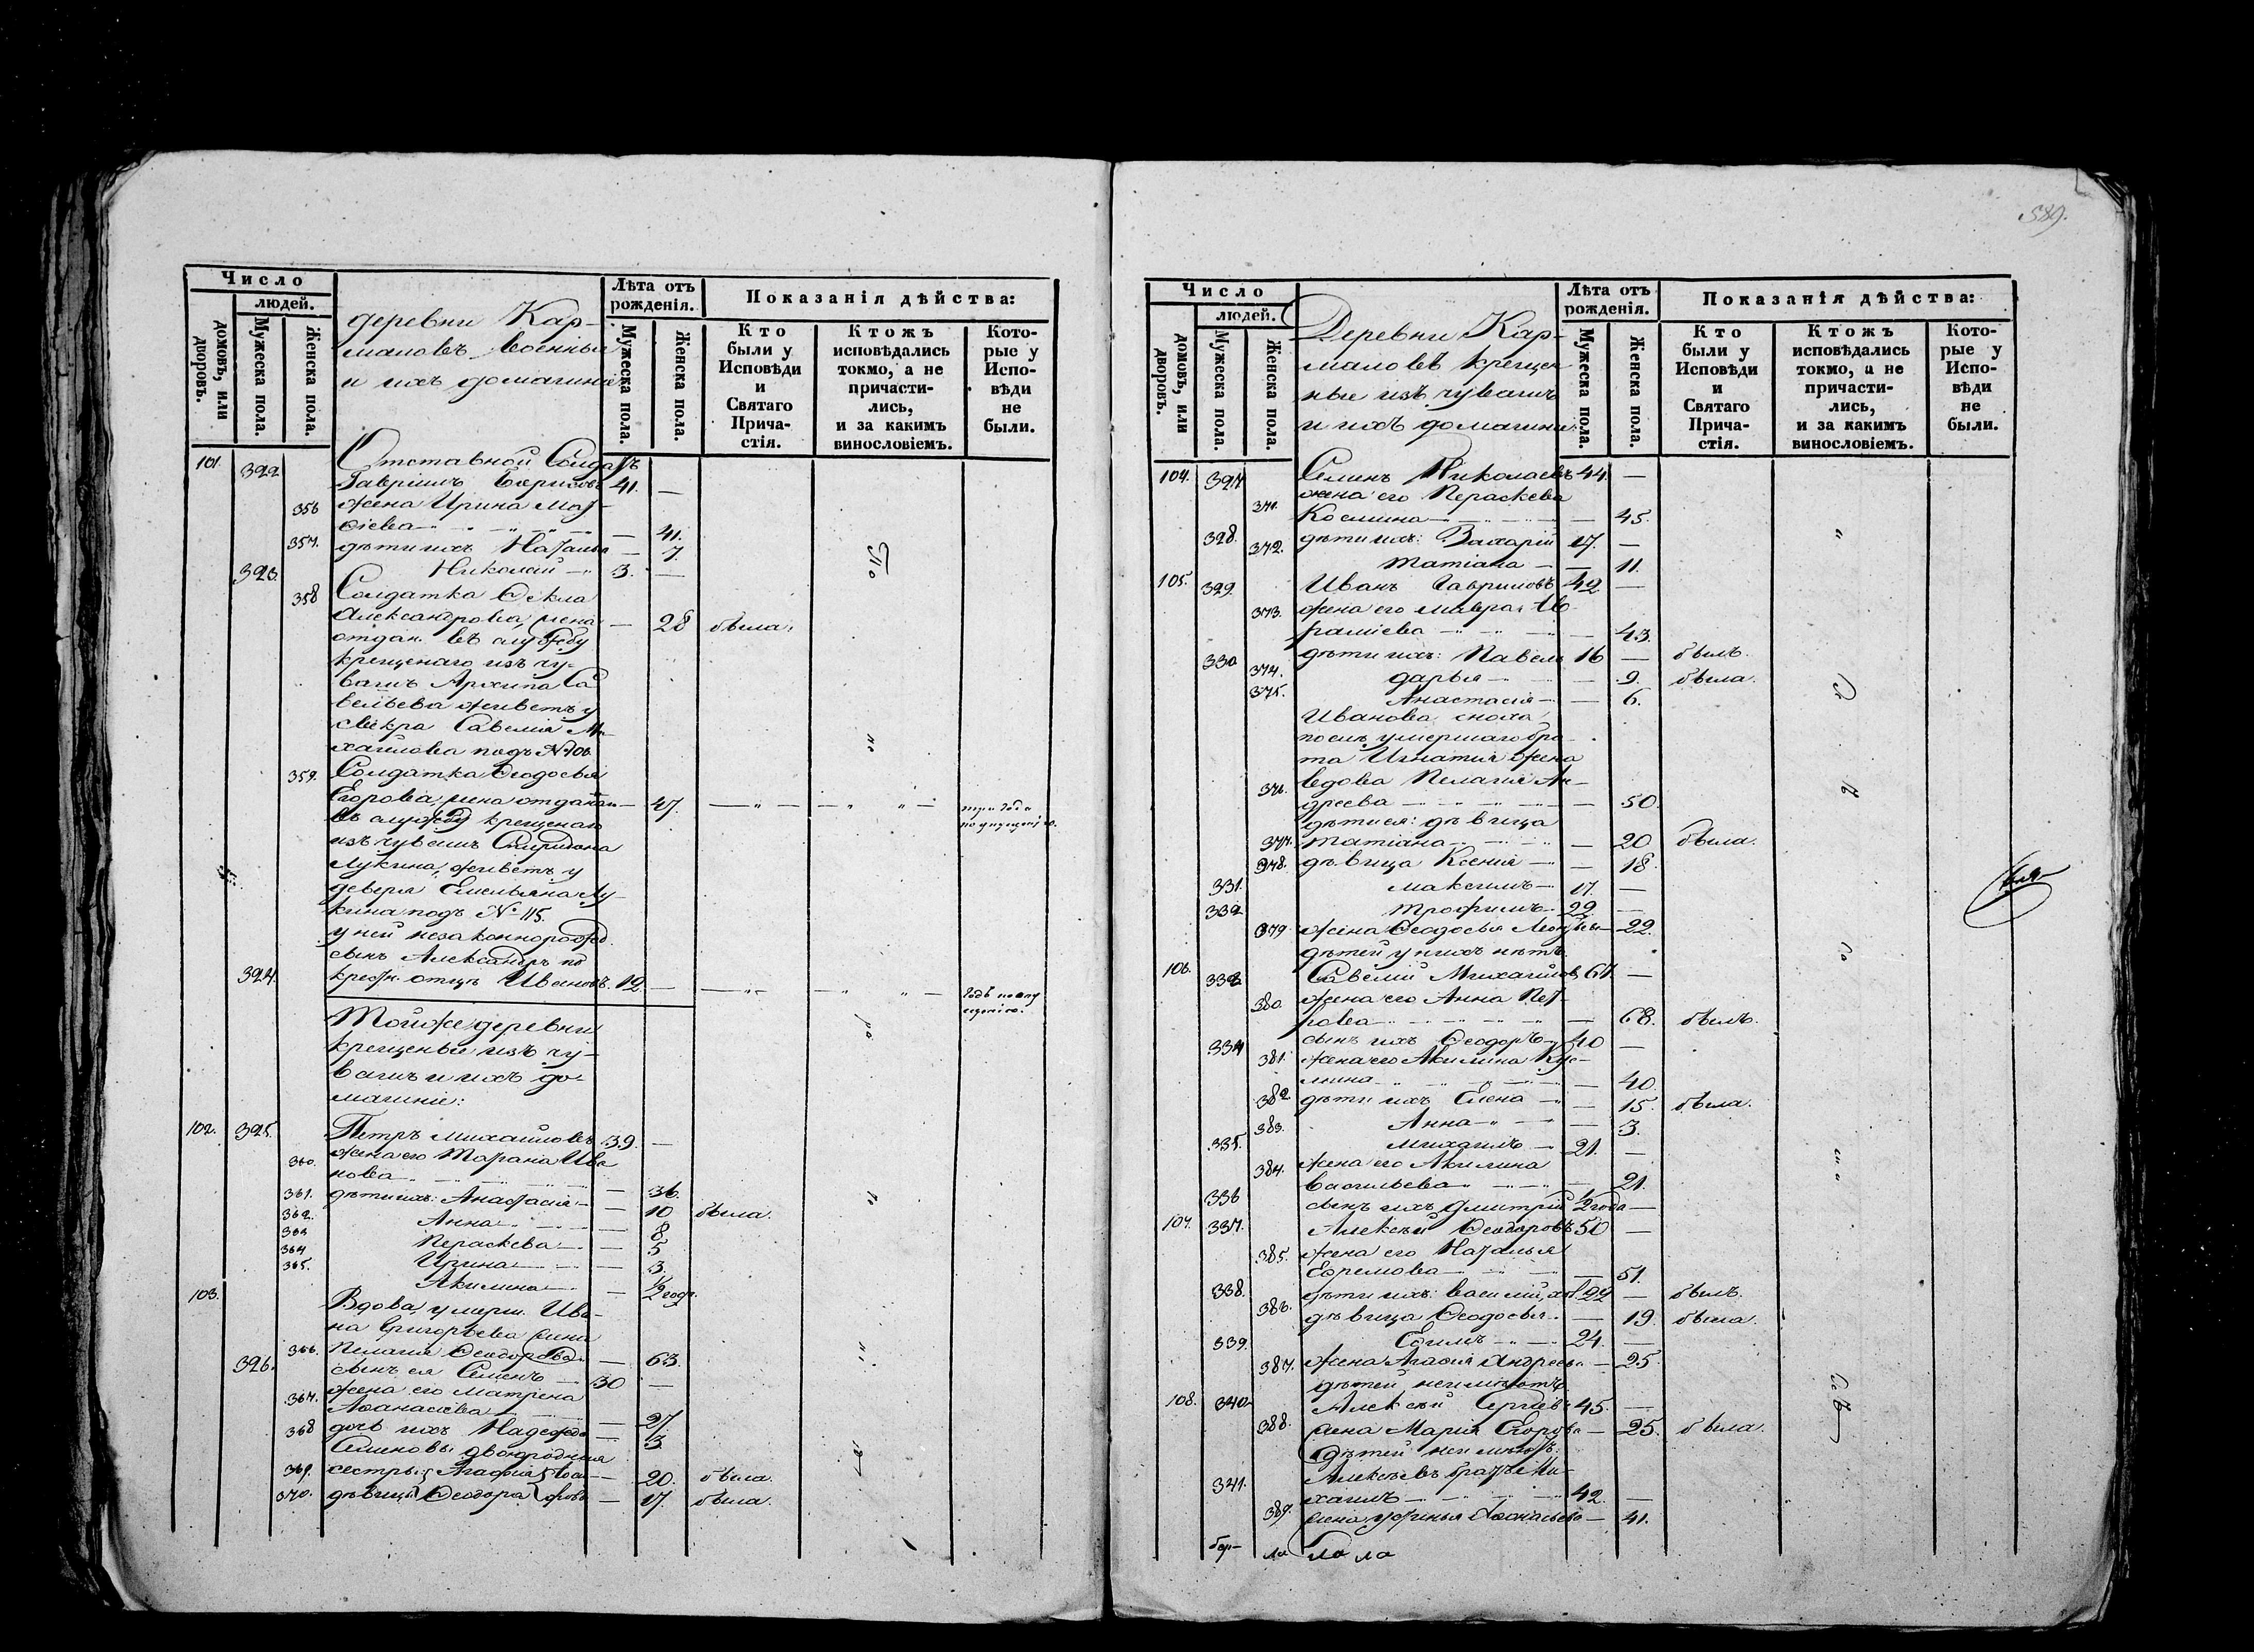 Число
людей.
домовъ, или дворовъ.
Мужеска пола.
Женска пола.
деревни Кар-
маловъ военные
и ихъ домашніе
Лѣта отъ рожденія.
Мужеска пола.
Женска пола.
Показанія дѣйства:
Кто были у Исповѣди и Святаго Прича-стія.
Ктожъ исповѣдались токмо, а не причасти-лись, и за какимъ винословіемъ.
Кото-рые у Испо-вѣди не были.
101. 322 Отставной Солдатъ
Гавріилъ Борисовъ 41. —
356 жена Ирина Мат-
ѳіева — 41.
357. дѣти ихъ Наталья — 7.
323. Николай 3. —
358 Солдатка Ѳекла
Александрова, жена — 28 была.
отдан. въ службу
крещенаго изъ чу-
вашъ Архипа Са
вельева живетъ у
свекра Савелія Ми-
хайлова подъ № 106.
359. Солдатка Ѳеодосья
Егорова, жена отданаго — 47. три года
въ службу крещенаго
изъ чувашъ Спиридона
Лукина, живетъ у
деверя Емельяна Лу-
кина подъ № 115.
у ней незаконнорожд.
сынъ Александръ по
324. крестн. отцу Ивановъ. 12. — годъ по опу
щенію.
Тойже деревни
крещеные изъ чу-
вашъ и ихъ до-
машніе:
102. 325. Петръ Михайловъ 39. —
360. жена его Марѳа Ива
нова — 36.
361. дѣти ихъ: Анастасія — 10 была.
362. Анна — 8
363 Пераскева — 5
364 Ирина — 3.
365. Акилина — 1/2 года.
103. Вдова умерш. Ива-
на Григорьева жена
366. Пелагія Ѳеодорова — 63.
326. сынъ ея Семенъ 30 —
367. жена его Матрена
Аѳанасіева — 27
368 дочь ихъ Надежда — 3
Семеновы двоюродныя
369. сестры: Агаѳія — 20. была.
370. дѣвицы Ѳеодора — 17. была.
389.
Число
людей.
домовъ, или дворовъ.
Мужеска пола.
Женска пола.
Деревни Кар-
маловъ крещен
ные изъ чувашъ
и ихъ домашніе.
Лѣта отъ рожденія.
Мужеска пола.
Женска пола.
Показанія дѣйства:
Кто были у Исповѣди и Святаго Прича-стія.
Ктожъ исповѣдались токмо, а не причасти-лись, и за какимъ винословіемъ.
Кото-рые у Испо-вѣди не были.
104. 327 Семенъ Николаевъ 44. —
жена его Пераскева
371. Космина — 45.
328. дѣти ихъ: Захарій 17. —
372. Татіана — 11.
105. 329. Иванъ Гавриловъ 42 —
373. жена его Мавра Ав-
рамiева — 43.
330 дѣти ихъ: Павелъ 16 — былъ.
374. Дарья — 9. была.
375. Анастасія — 6.
Иванова сноха
послѣ умершаго бра-
та Игнатія жена
вдова Пелагія Ан-
376. дреева — 50.
дѣти ея: дѣвица
377. Татіана — 20 была.
378. дѣвица Ксенія — 18.
331. Максимъ 17. —
332 Трофимъ 22 —
379 жена Ѳеодосья — 22.
дѣтей у нихъ нѣтъ.
106. 333 Савелій Михайловъ 67. —
380. жена его Анна Пет-
рова — 68. былъ.
334 сынъ ихъ Ѳеодоръ 40 —
381. жена его Акилина Кус-
мина — 40.
382. дѣти ихъ Елена — 15. была.
383. Анна — 3.
335. Михаилъ 21. —
384. жена его Акилина
Васильева — 21.
336 сынъ ихъ Дмитрій 1/2 года —
107. 337. Алексѣй Ѳеодоровъ 50 —
385. жена его Наталья
Ефремова — 51.
338. дѣти ихъ: Василій, 22 — былъ.
386. дѣвица Ѳеодосья. — 19. была.
339. Ефимъ 24. —
387. жена Агаѳія Андреева — 25.
дѣтей неимѣютъ.
108. 340. Алексѣй Сергѣевъ 45. —
388. жена Марія Егорова — 25. была.
Дѣтей неимѣютъ.
Алексѣевъ братъ Ми-
341. хаилъ — 42. —
389. жена Устинья Аѳанасьева — 41.